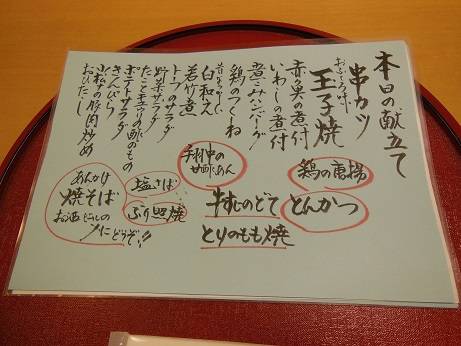 本日の献立て
串カツ
おふくろの味
玉子焼
赤魚の煮付
いわしの煮付
煮込ハンバーグ
鶏のつくね
昔なつかしい
白和え
若竹煮
トフのサラダ
野菜サラダ
たこと玉うりの酢のもの
ポテトサラダ
きんぴら
小松菜の豚肉炒め
おひたし
鶏の唐揚
とんかつ
手羽中の
甘酢あん
牛すじのどて
とりのもも焼
塩さば
ぶり照焼
あんかけ
焼そば
お酒
の
〆にどうぞ!!